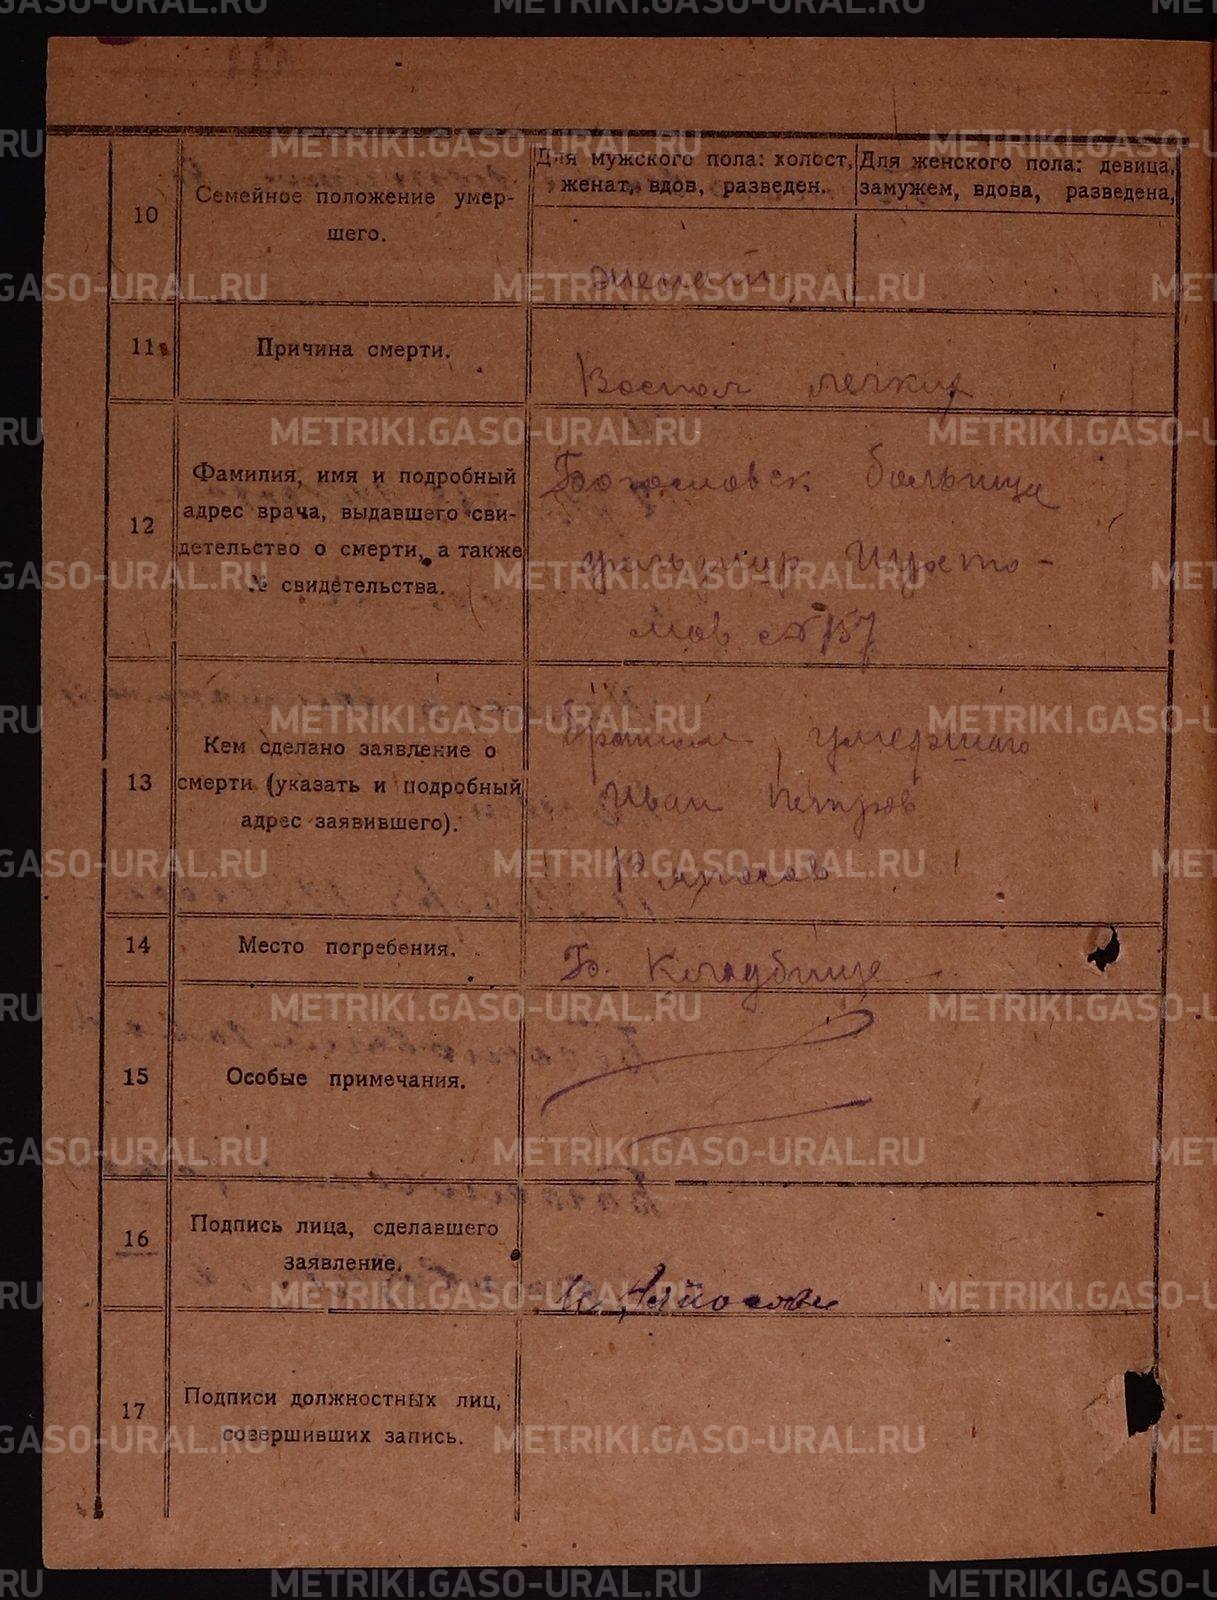 10
Семейное положение умер-
шего.
Для мужского пола: холост,
женат, вдов, разведен.
Для женского пола: девица,
замужем, вдова, разведена,
женат
11
Причина смерти.
Воспол легких
12
Фамилия, имя и подробный
адрес врача, выдавшего сви-
детельство о смерти, а также
№ свидетельства.
Богословск больница
фельдшер
№ 137
13
Кем сделано заявление о
смерти (указать и подробный
адрес заявившего).
Братом умершаго
Иван Петров
14
Место погребения.
Б. Кладбище
15
Особые примечания.
16
Подпись лица, сделавшего
заявление.
17
Подписи должностных лиц,
совершивших запись.
METRIKI.GASO-URAL.RU